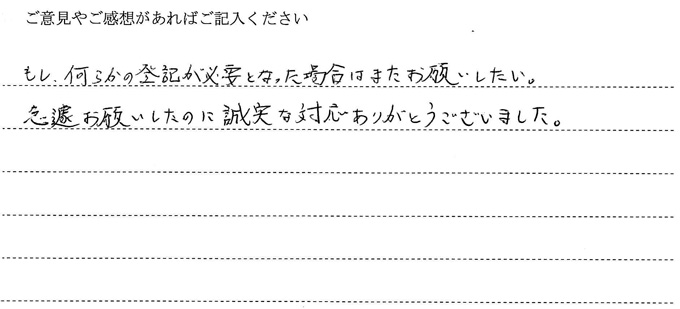 ご意見やご感想があればご記入ください
もし、何らかの登記が必要となった場合はまたお願いしたい。
急遽お願いしたのに誠実な対応ありがとうございました。